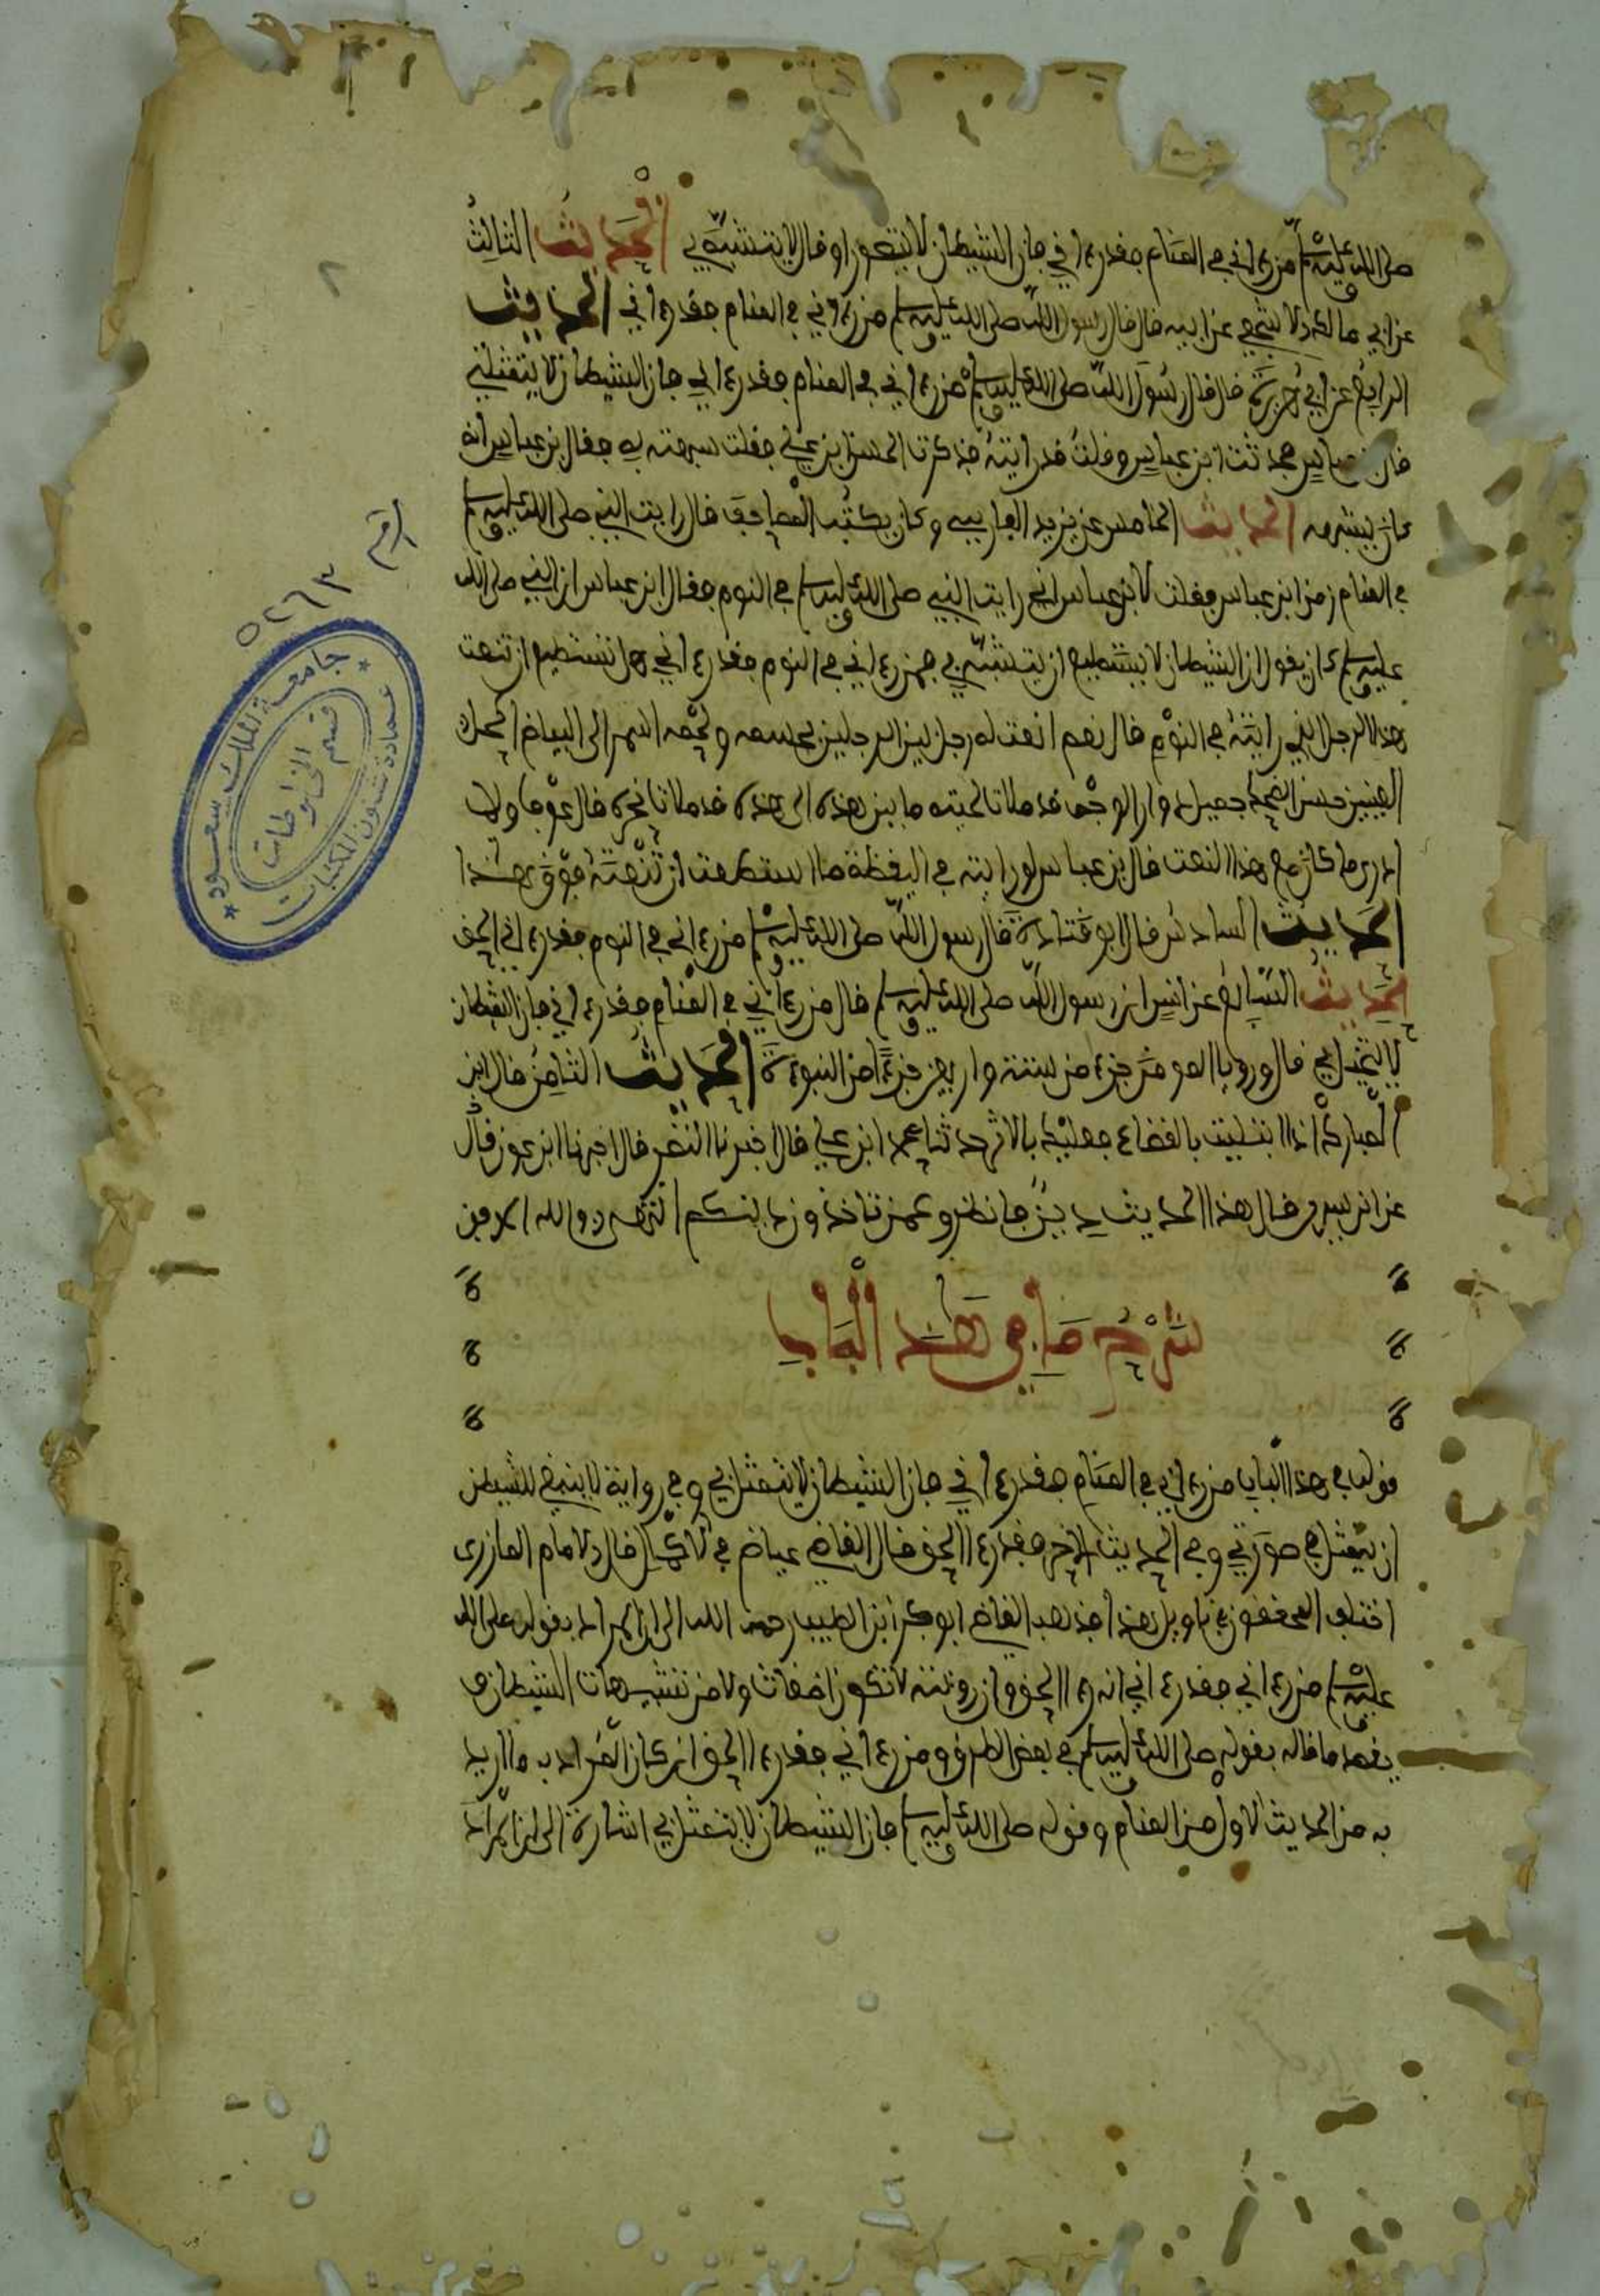 صلى الله عليه وسلم من رءاني في المنام فقد رءاني فإن الشيطان لا يتصور او قال لا يتشبه بي الحديث الثالث
عن ابي مالك الاشجعي عن ابيه قال قال رسول الله صلى الله عليه وسلم من رءاني في المنام فقد رءاني الحديث
الرابع عن ابي هريرة قال قال رسول الله صلى الله عليه وسلم من رءاني في المنام فقد رءاني فإن الشيطان لا يتمثلني
قال فحدثت ابن عباس وقلت قد رايته فذكرت الحسن ابن علي فقلت شبهته به فقال بن عباس انه
كان يشبهه الحديث الخامس عن يزيد الفارسي وكان يكتب المصاحف قال رايت النبي صلى الله عليه وسلم
في المنام زمن ابن عباس فقلت لابن عباس اني رايت النبي صلى الله عليه وسلم في النوم فقال ابن عباس ان النبي صلى الله
عليه وسلم كان يقول ان الشيطان لا يستطيع ان يتشبه بي فمن رءاني في النوم فقد رءاني هل تستطيع ان تنعت
هذا الرجل الذي رايته في النوم قال نعم انعت له رجل بين الرجلين جسمه ولحمه اسمر الى البياض اكحل
العينين حسن الضحك جميل دوار الوجه قد ملات لحيته ما بين هذه الى هذه قد ملات نحره قال عوف ولا
ادري ما كان مع هذا النعت قال بن عباس لو رايته في اليقظة ما استطعت ان تنعته فوق هذا
الحديث السادس قال ابو قتادة قال رسول الله صلى الله عليه وسلم من رءاني في النوم فقد رءاني الحق
الحديث السابع عن انس ان رسول الله صلى الله عليه وسلم قال من رءاني في المنام فقد رءاني فإن الشيطان
لا يتخيل بي قال ورويا المومن جزء من ستة واربعين جزءا من النبوءة الحديث الثامن قال ابن
المبارك اذا ابتليت بالقضاء فعليك بالاثر حدثنا محمد ابن علي قال اخبرنا النضر قال اخبرنا ابن عون قال
عن ابن سيرين قال هذا الحديث دين فانظروا عمن تاخذون دينكم انتهى
شرح ما في هذا الباب
قوله في هذا الباب من رءاني في المنام فقد رءاني فإن الشيطان لا يتمثل بي وفي رواية لا ينبغي للشيطن
ان يتمثل في صورتي وفي الحديث الاخر فقد رءا الحق قال القاضي عياض في الاكمال قال الامام المازري
اختلف المحققون في تاويل هذا فذهب القاضي ابو بكر ابن الطيب رحمه الله الى ان المراد بقوله صلى الله
عليه وسلم من رءاني فقد رءاني انه رءا الحق وان رويته لا تكون اضغاث ولا من تشبيهات الشيطان
يعضد ما قاله بقوله صلى الله عليه وسلم في بعض الطرق ومن رءاني فقد رءا الحق ان كان المراد به ما اريد
به من الحديث الاول من المنام وقوله صلى الله عليه وسلم فان الشيطان لا يتمثل بي اشارة الى ان المراد
٢
الرقم ٥٢٦٣
جامعة الملك سعود
عمادة شئون المكتبات
قسم المخطوطات